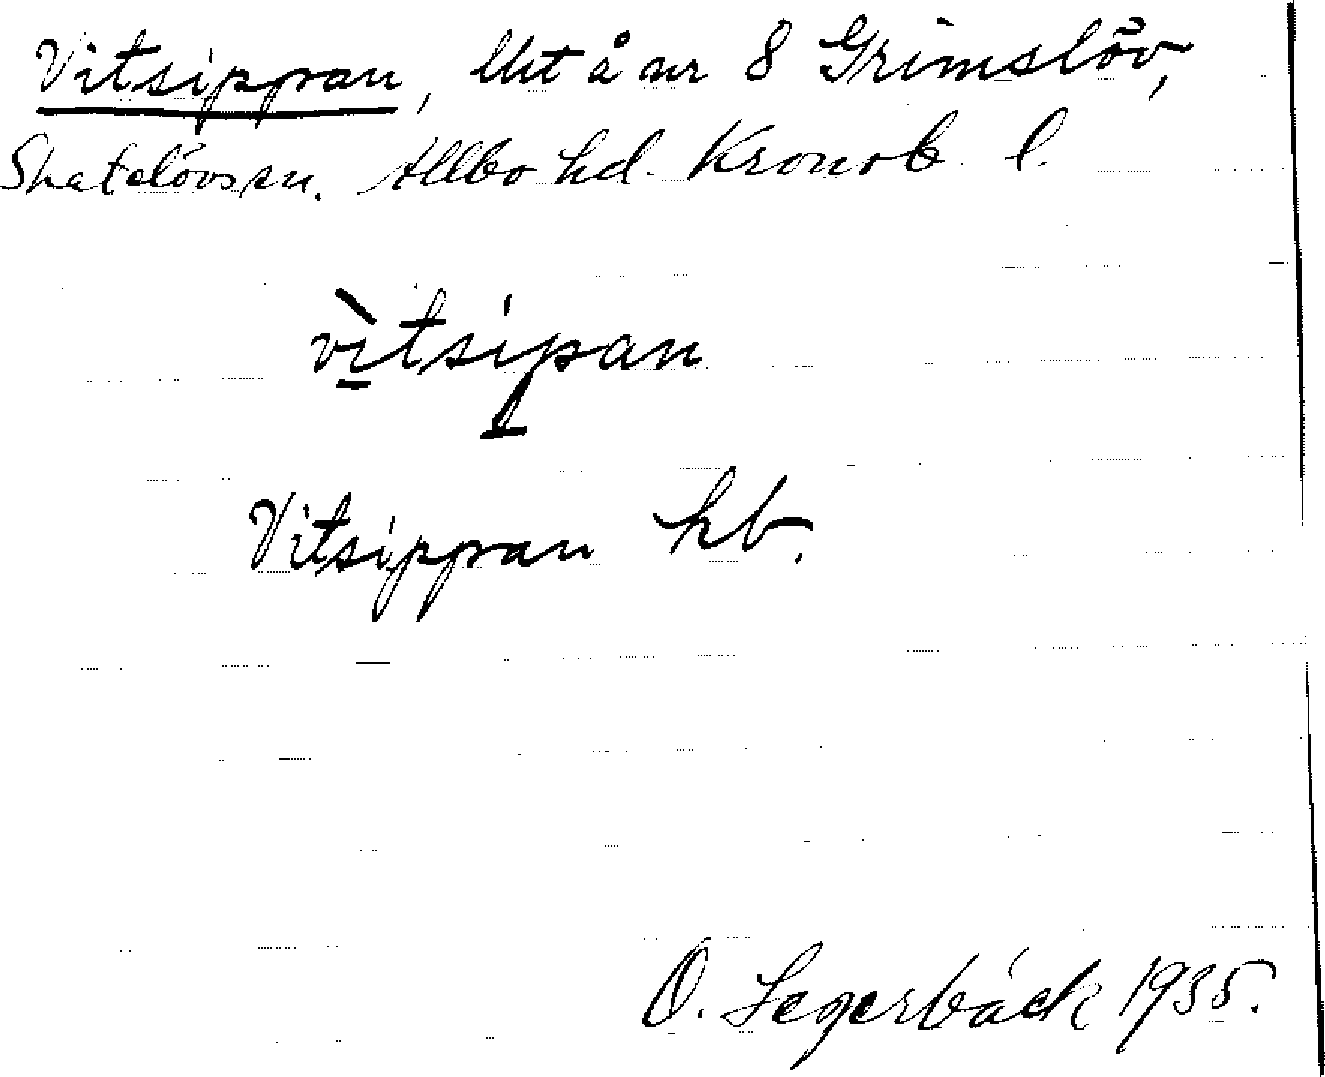 Vitsippan, Utt å nr 8 Grimslöv,
Skatelövs sn. Allbo hd. Kronob. l.
vìtsipan
Vitsippan hb.
O. Segerbäck 1935.